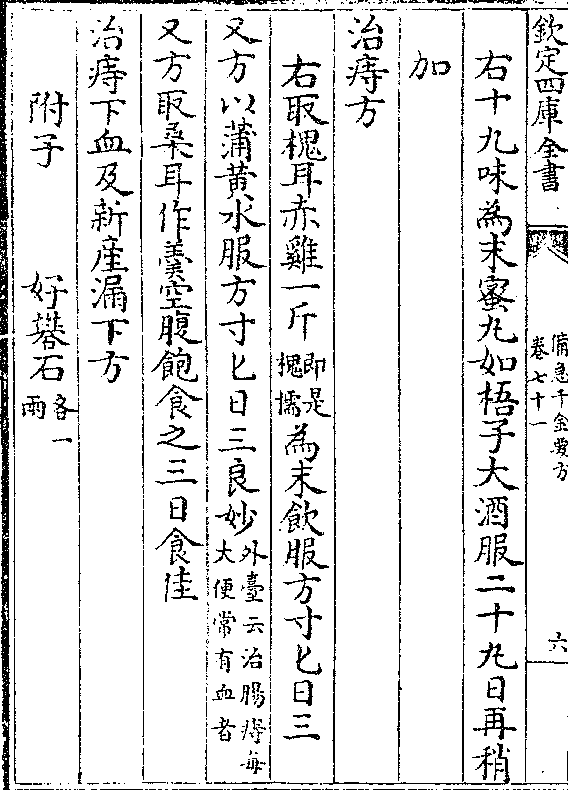 欽定四庫全書
備急千金要方
卷七十一
六
右十九味為末蜜丸如梧子大酒服二十丸日再稍
加
治痔方
右取槐耳赤雞一斤即是槐檽為末飲服方寸匕日三
又方以蒲黃水服方寸匕日三良妙外臺云治腸痔每大便常有血者
又方取桑耳作羹空腹飽食之三日食佳
治痔下血及新產漏下方
附子　好礬石各一兩